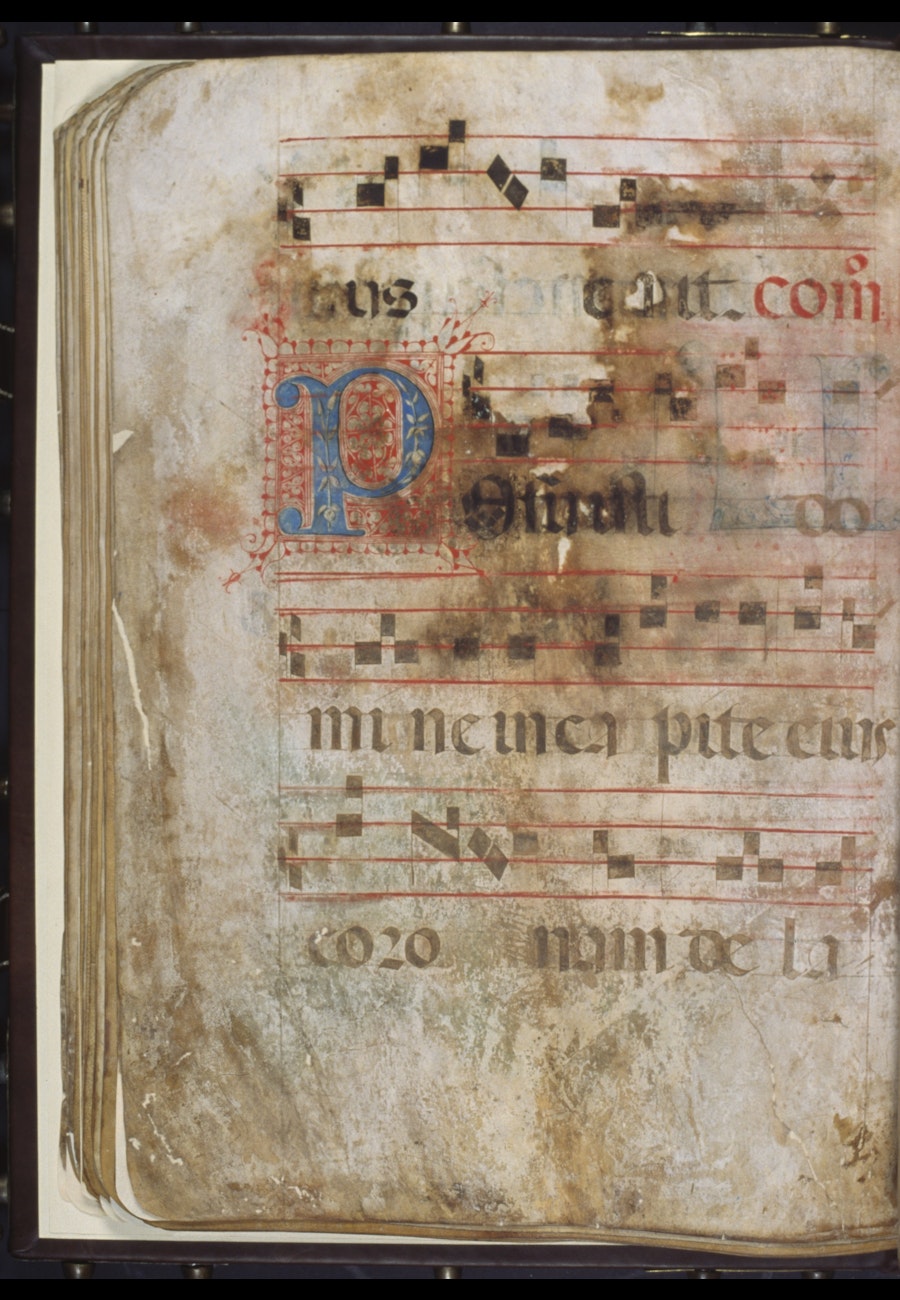 cant. com̄
Posuisti do
mi ne in ca pite eius
coro nam de la